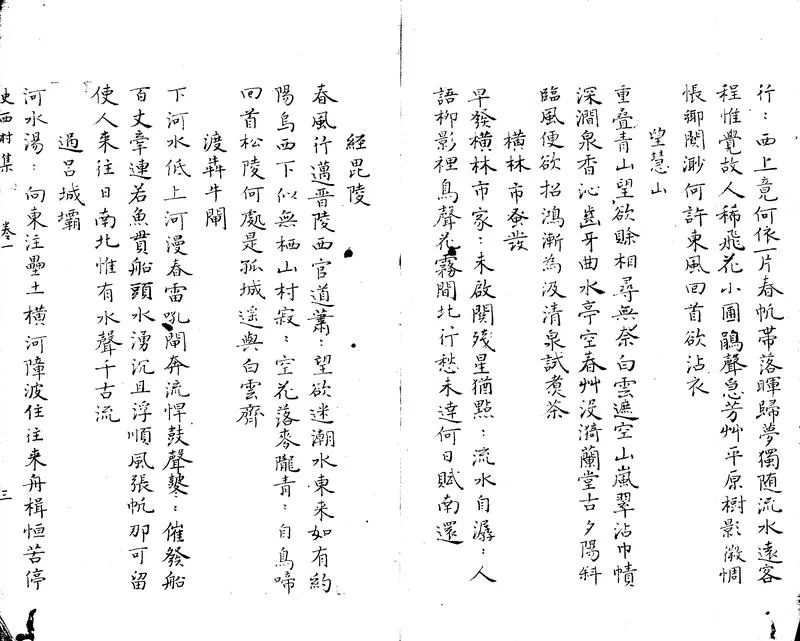 行〻西上竟何依一片春帆帶落暉歸夢獨随流水遠客
程惟覺故人稀飛花小圃鵑聲急芳艸平原樹影微惆
悵鄉関渺何許東風回首欲沾衣
望慧山
重疊青山望欲賒相尋無奈白雲遮空山嵐翠沾巾幘
深澗泉香沁齒牙曲水亭空春艸没漪蘭堂古夕陽斜
臨風便欲招鴻漸為汲清泉試煮茶
橫林市蚤發
早發橫林市家〻未啟関殘星猶點〻流水自潺〻人
語柳影裡鳥聲花霧間北行愁未達何日賦南還
經毘陵
春風行邁晋陵西官道蕭〻望欲迷潮水東来如有約
陽烏西下似無栖山村寂〻空花落麥隴青〻自鳥啼
回首松陵何處是孤城遥與白雲齊
渡犇牛閘
下河水低上河漫春雷吼閘奔流悍鼓聲鼕〻催發船
百丈牽連若魚貫船頭水湧沉且浮順風張帆那可留
使人来往日南北惟有水聲千古流
過呂城壩
河水湯〻向東注壘土橫河障波住往来舟楫恒苦停
史西村集 卷一 三